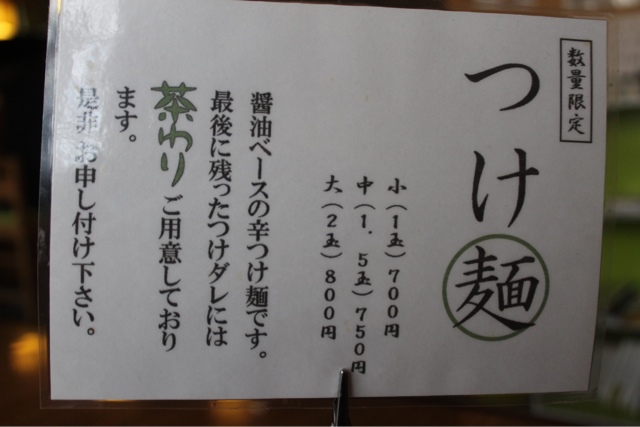 数量限定
つけ麺
小(1玉)700円
中(1.5玉)750円
大(2玉)800円
醤油ベースの辛つけ麺です。
最後に残ったつけダレには
茶わりご用意しており
ます。
是非お申し付け下さい。